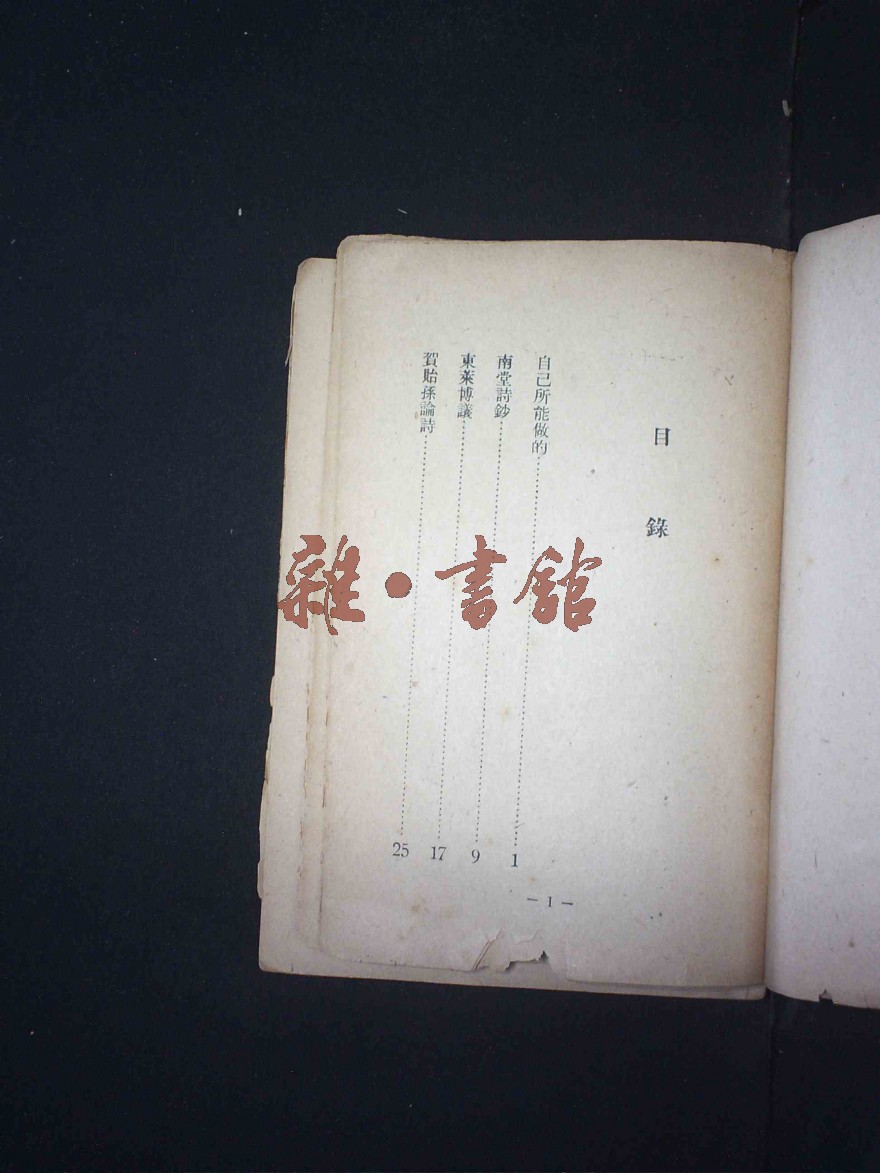 目錄
自己所能做的……1
南堂詩鈔……9
東萊博議……17
賀貽孫論詩……25
— I —
雜·書館